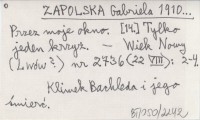 ZAPOLSKA Gabriela 1910...
Przez moje okno. [14] Tylko
jeden krzyż. – Wiek Nowy
(Lwów?) nr 2736 (22 VIII): 2-4.
Klimek Bachleda i jego
śmierć.